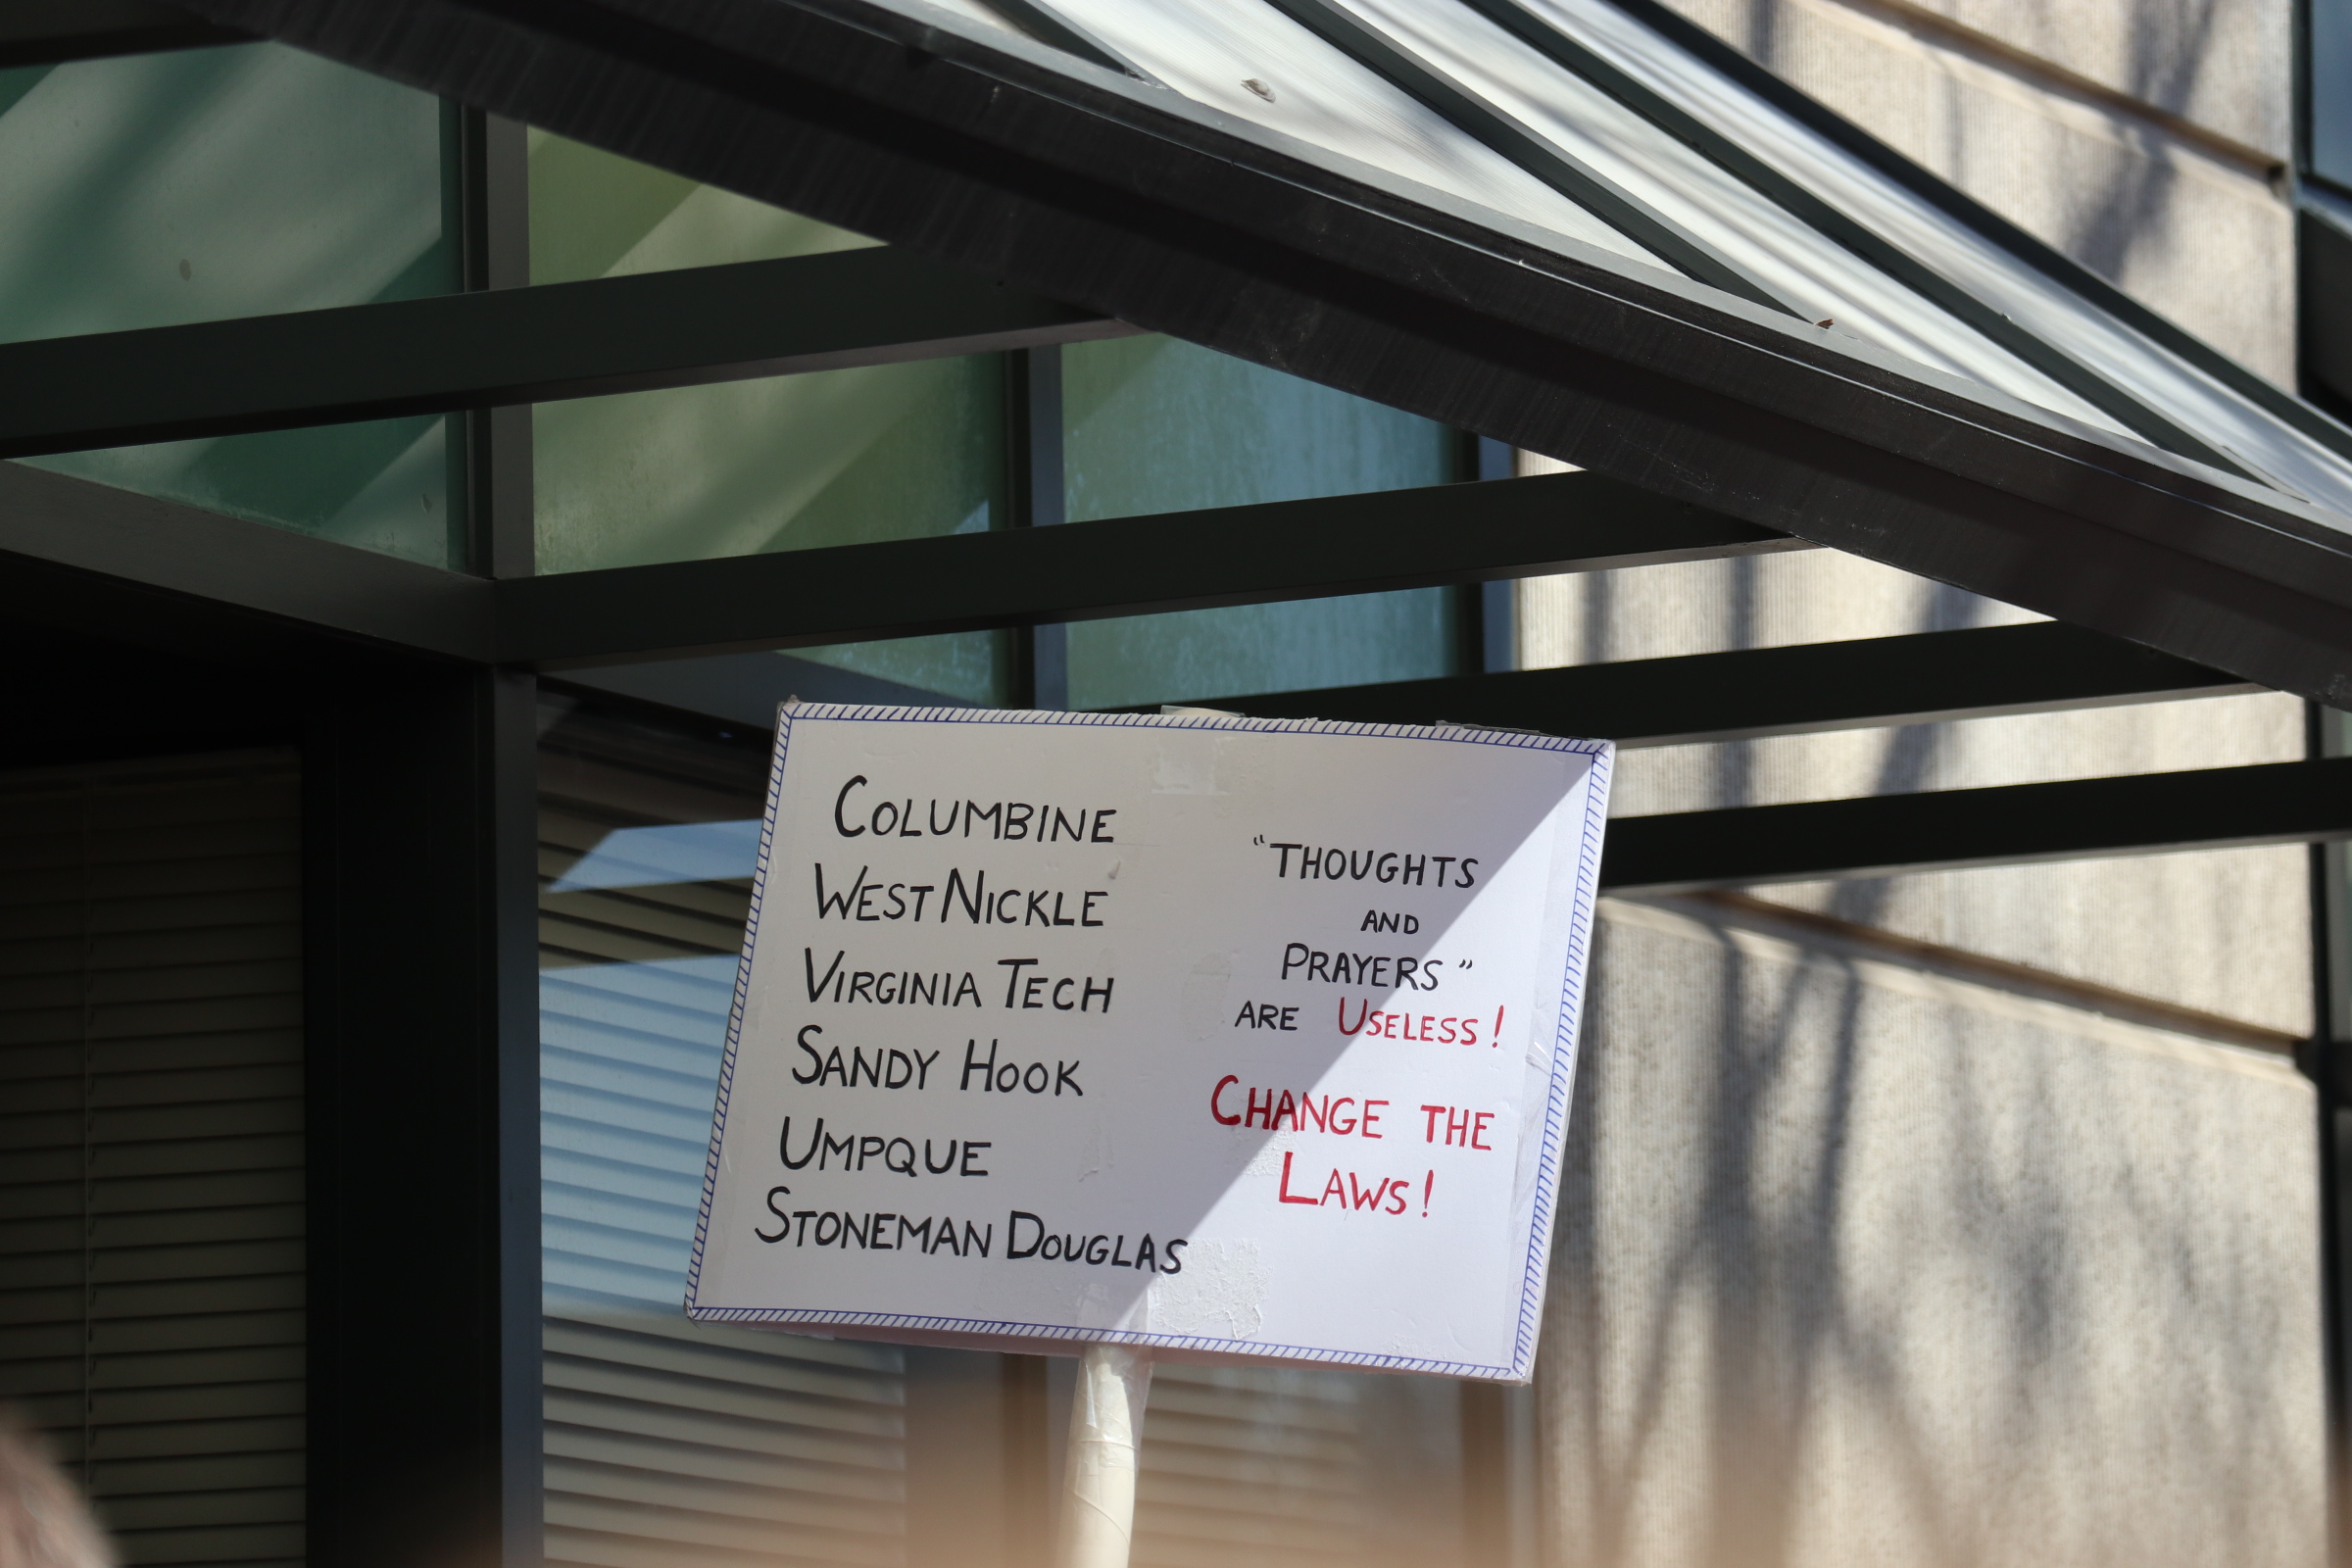 COLUMBINE
WEST NICKLE
VIRGINIA TECH
SANDY HOOK
UMPQUE
STONEMAN DOUGLAS
"THOUGHTS
AND
PRAYERS"
ARE USELESS!
CHANGE THE
LAWS!